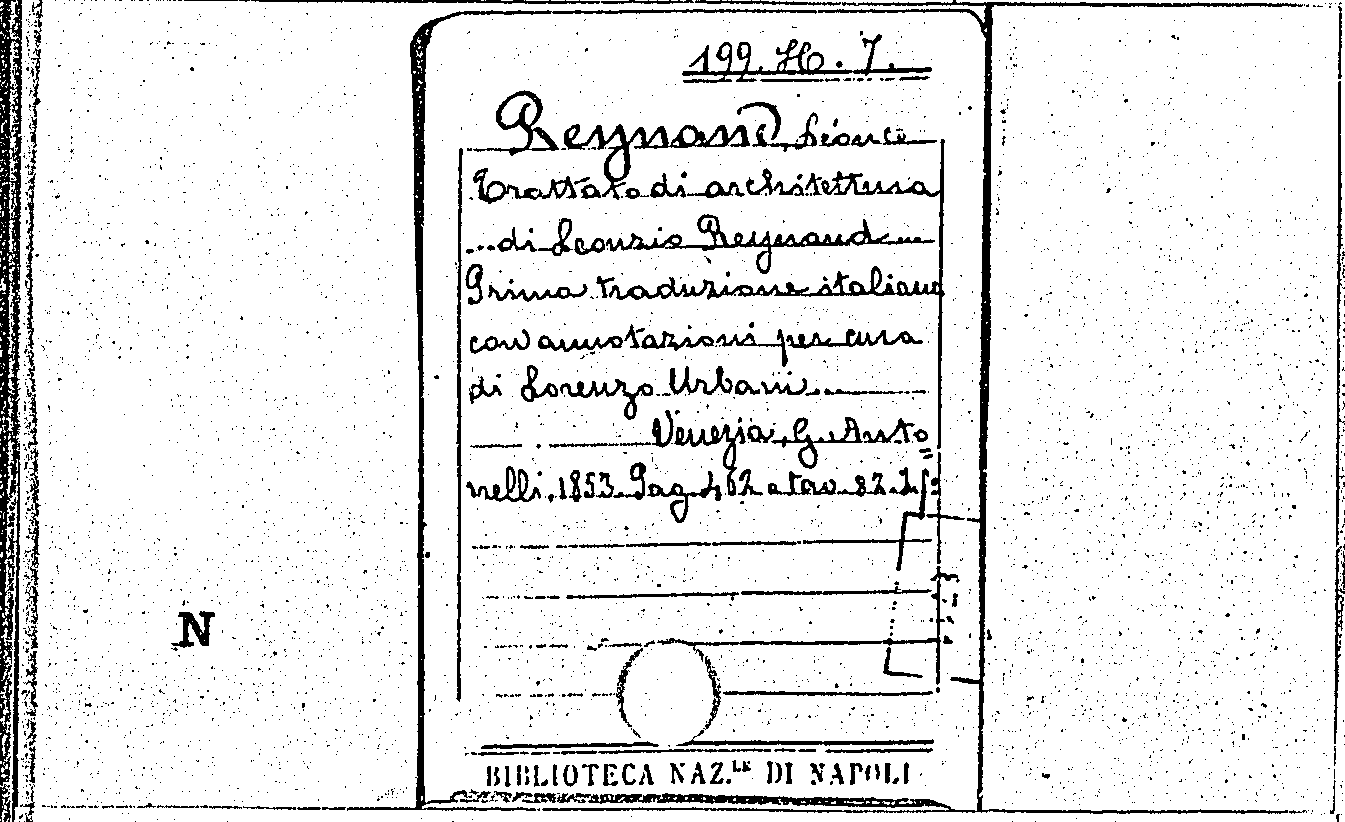 199. H. 7.
Reynaud, Léonce
Trattato di architettura
... di Leonzio Reynaud ...
Prima traduzione italiana
con annotazioni per cura
di Lorenzo Urbani ...
Venezia, G. Anto
nelli, 1853 Pag. 462 e tav. 82.
N
BIBLIOTECA NAZ.LE DI NAPOLI